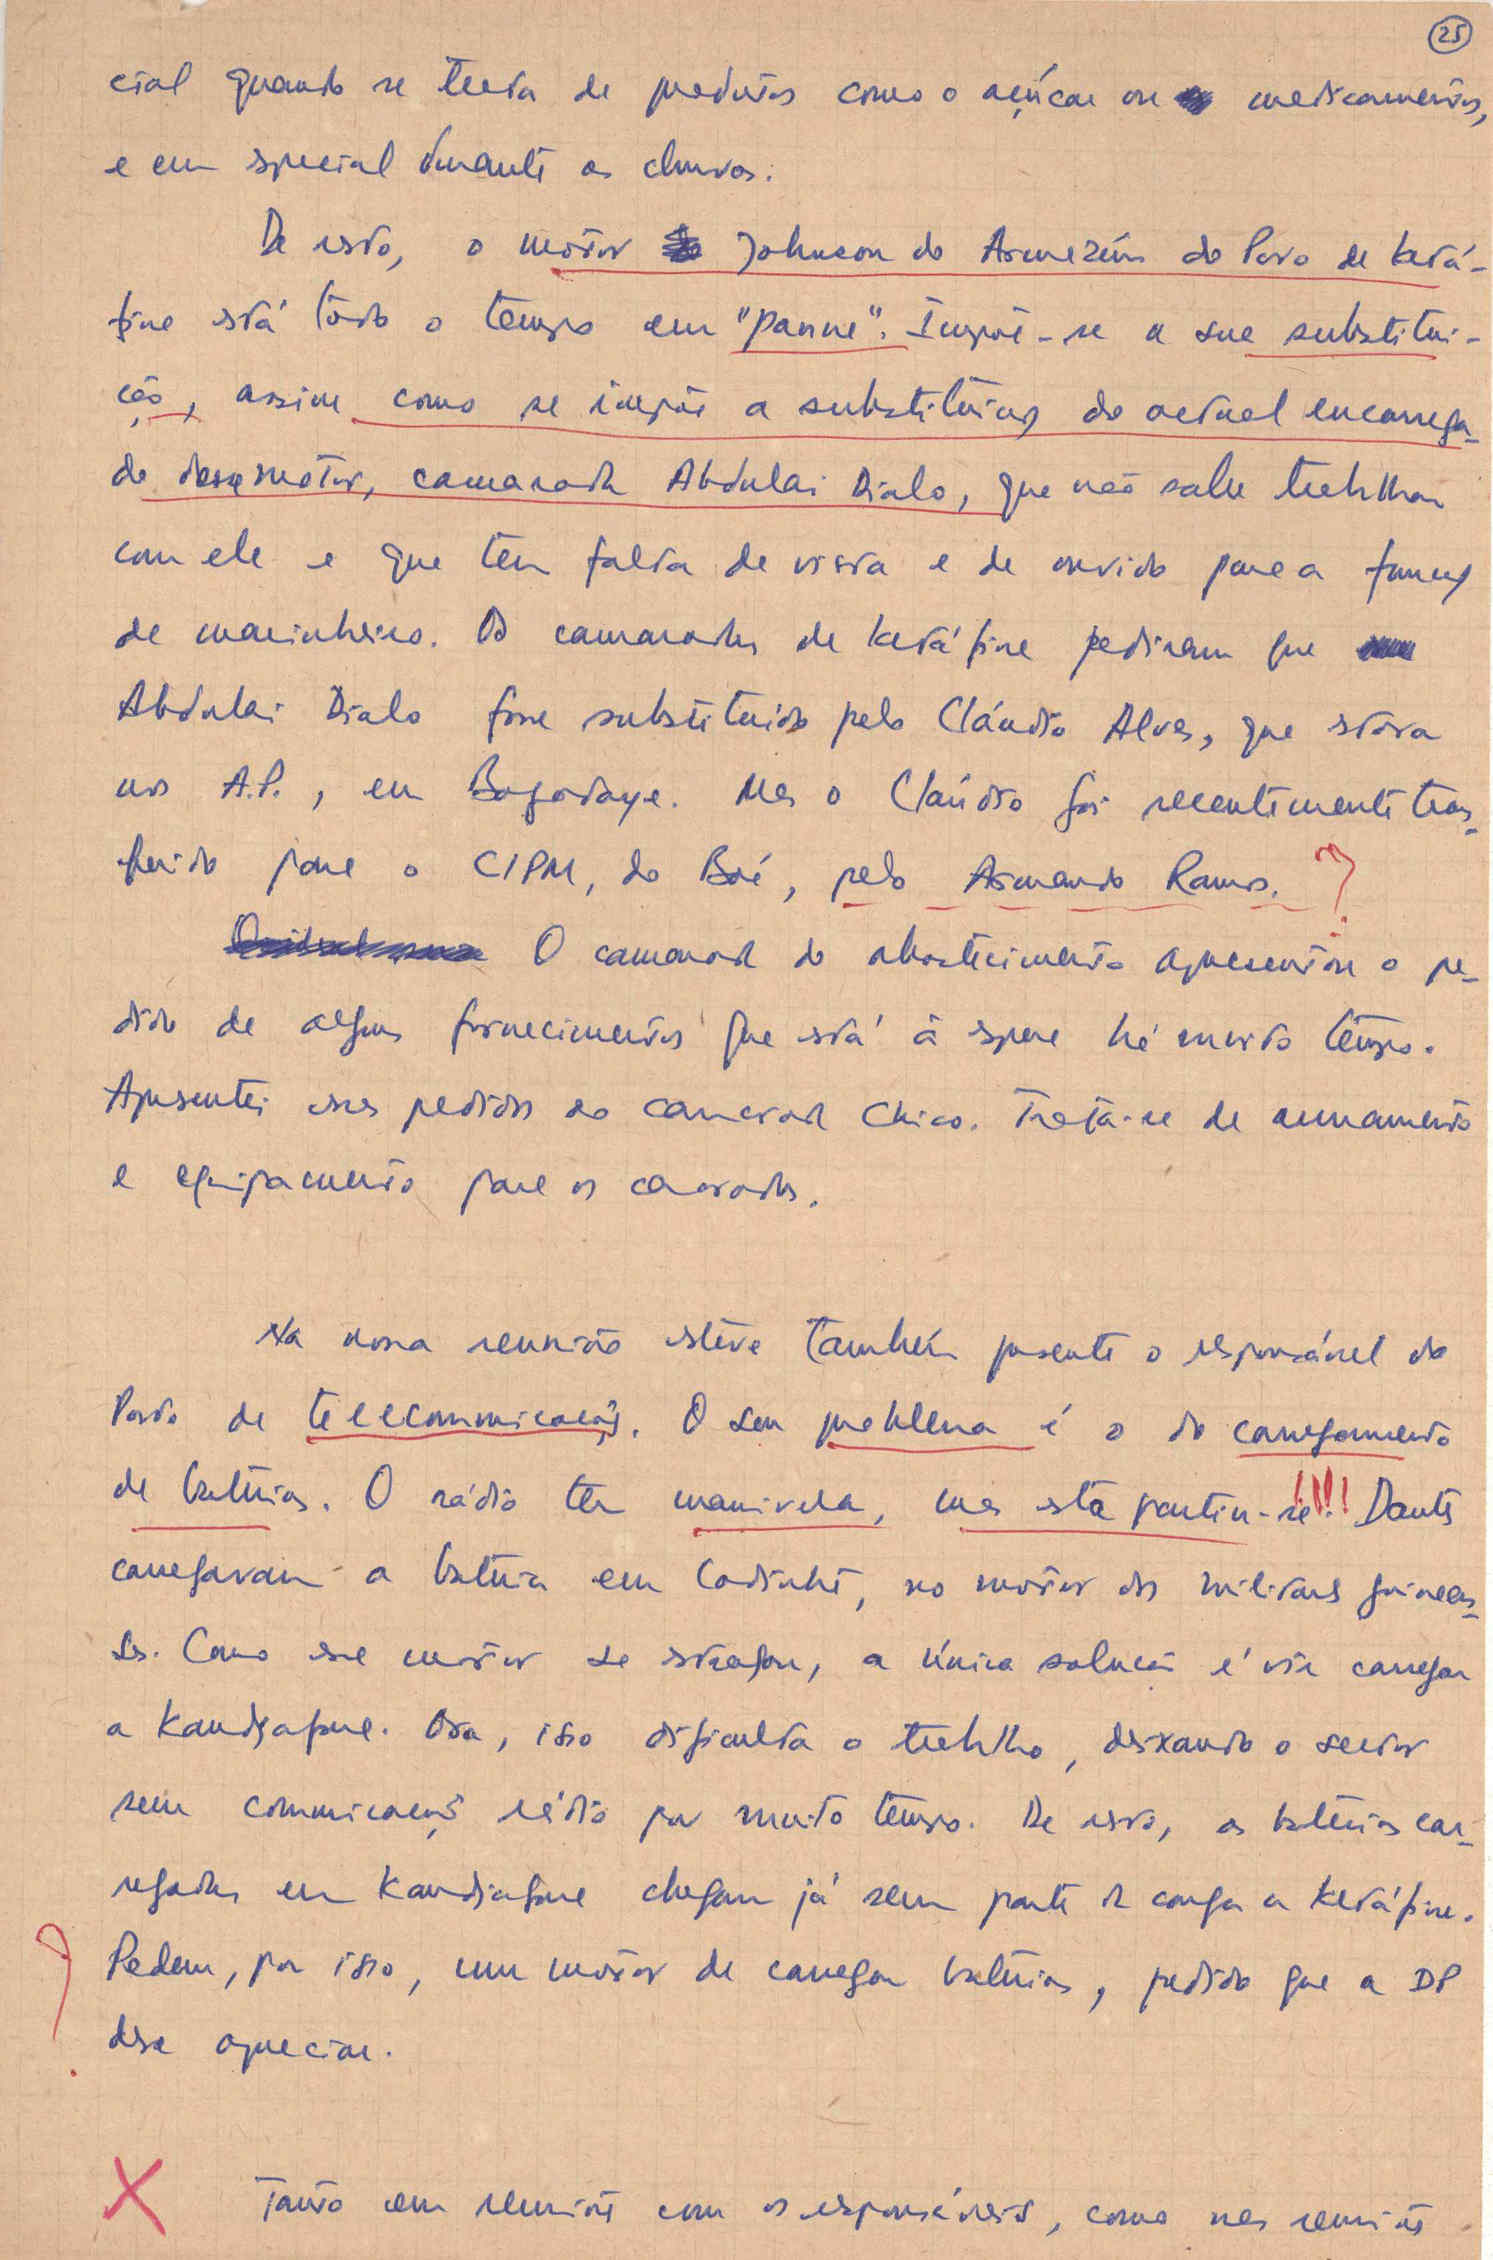 25
cial quando se trata de produtos como o açúcar ou medicamentos,
e em special durante as chuvas.
De resto, o motor Johnson do Armazém do Povo de Ketá-
fine está tôdo o tempo em "panne". Impõe-se a sua substitui-
ção, assim como se impõe a substituição do actual encarrega-
do desse motor, camarada Abdulai Dialo, que não sabe trabalhar
com ele e que tem falta de vista e de ouvido para a função
de marinheiro. Os camaradas de Ketáfine pediram que
Abdulai Dialo fosse substituido pelo Cláudio Alves, que stava
nos A.P., em Bagadaye. Mas o Cláudio foi recentemente trans-
ferido para o CIPM, do Boé, pelo Armando Ramos. ?
O camarada do abastecimento apresentou o pe-
dido de alguns fornecimentos que está à espera há muito tempo.
Apresentei esses pedidos ao camarada Chico. Trata-se de armamento
e equipamento para os camaradas.
Na nossa reunião estêve também presente o responsável do
Posto de telecomunicações. O seu problema é o do carregamento
de baterias. O rádio tem manivela, mas esta partiu-se!!!! Dantes
carregavam a bateria em Codinhé, no motor dos militares guineen-
ses. Como esse motor se estragou, a única solução é vir carregar
a Kandjafine. Ora, isso dificulta o trabalho, deixando o sector
sem comunicação rádio por muito tempo. De resto, as baterias car-
regadas em Kandjafine chegam já sem parte da carga a Ketáfine.
? Pedem, por isso, um motor de carregar baterias, pedido que a DP
deve apreciar.
X Tanto em reuniões com os responsáveis, como nas reuniões